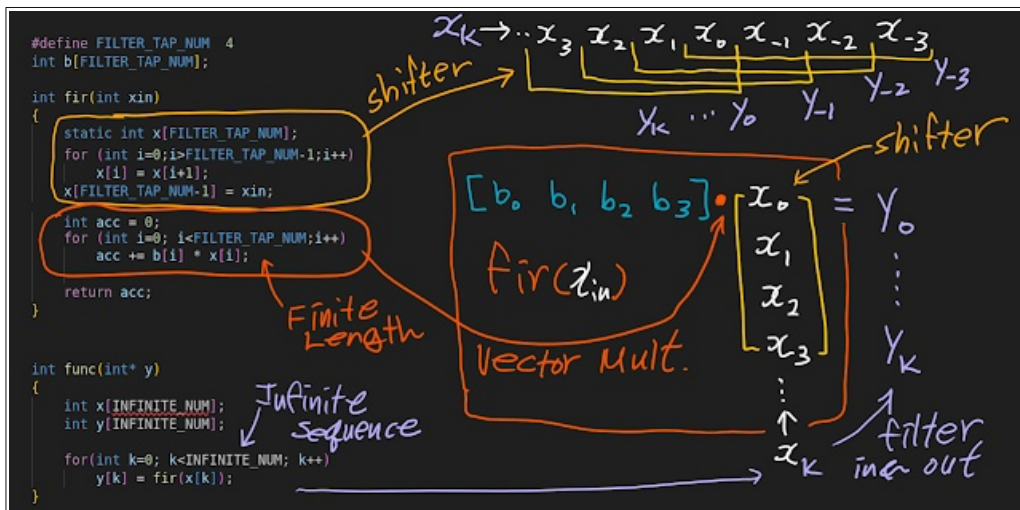 #define FILTER_TAP_NUM 4
int b[FILTER_TAP_NUM];
int fir(int xin)
{
static int x[FILTER_TAP_NUM];
for (int i=0;i>FILTER_TAP_NUM-1;i++)
x[i] = x[i+1];
x[FILTER_TAP_NUM-1] = xin;
int acc = 0;
for (int i=0; i<FILTER_TAP_NUM;i++)
acc += b[i] * x[i];
return acc;
}
Finite
Length
int func(int* y)
{
int x[INFINITE_NUM];
int y[INFINITE_NUM];
for(int k=0; k<INFINITE_NUM; k++)
y[k] = fir(x[k]);
}
Infinite
sequence
shifter
x_K → ·· x_3 x_2 x_1 x_0 x_-1 x_-2 x_-3
Y_K ··· Y_0 Y_-1 Y_-2 Y_-3
shifter
[b_0 b_1 b_2 b_3] • [x_0 x_1 x_2 x_3] = Y_0
⋮
Y_K
fir(x_in)
Vector Mult.
⋮
↑
x_K
filter
out